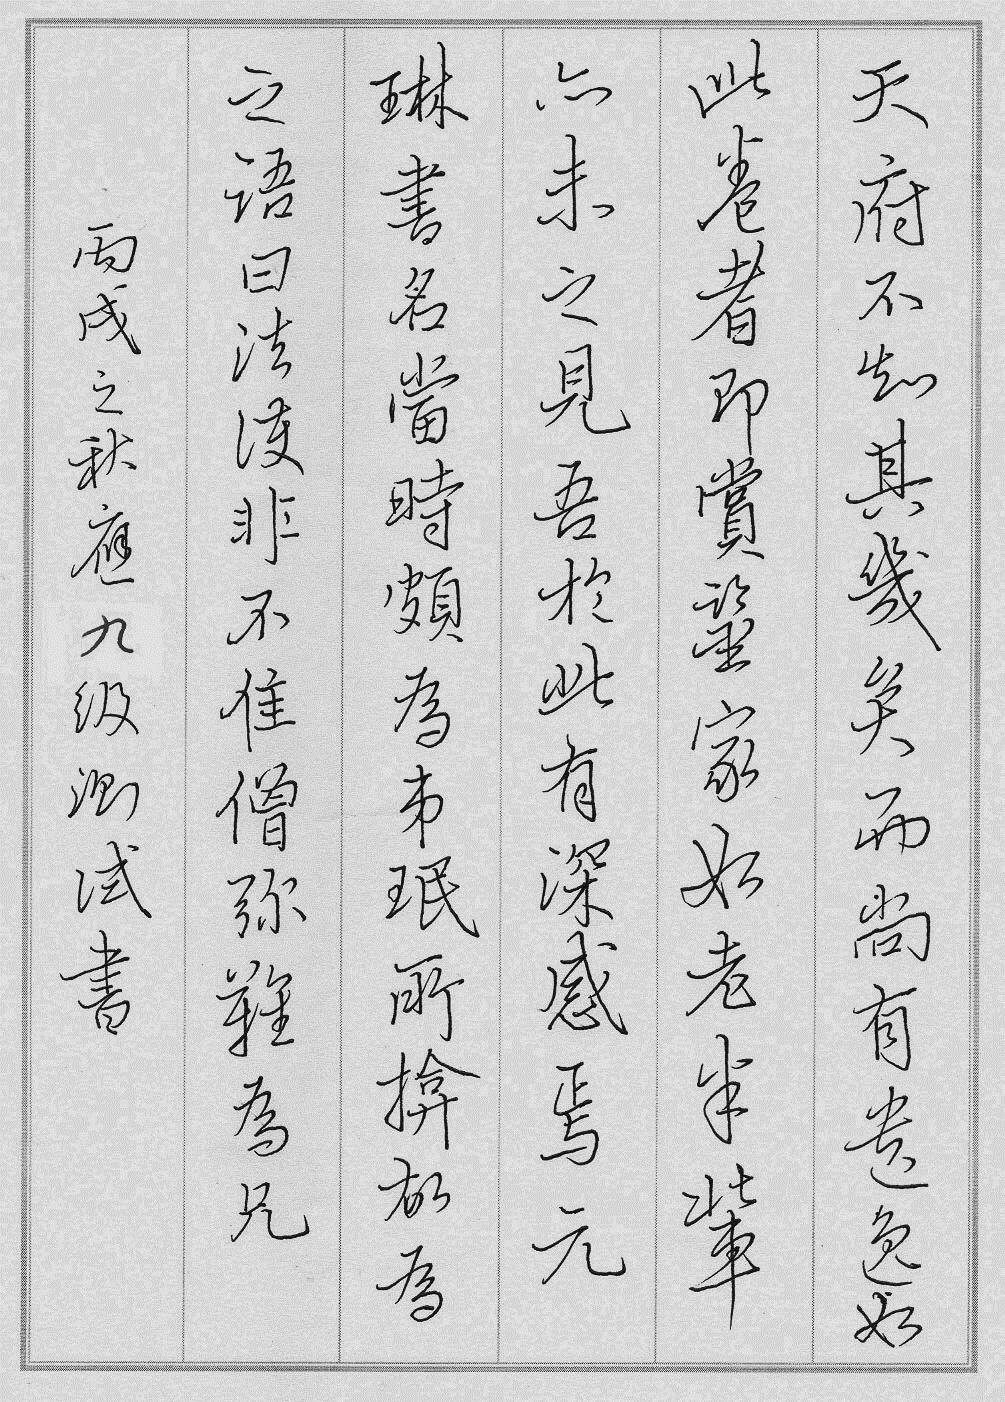 天府不知其幾矣而尚有遗逸如
此卷者即賞鑒家如老米輩
亦未之見吾於此有深感焉元
琳書名當時頗為弟珉所揜故為
之語曰法護非不佳僧弥難為兄
丙戌之秋應九级测试書